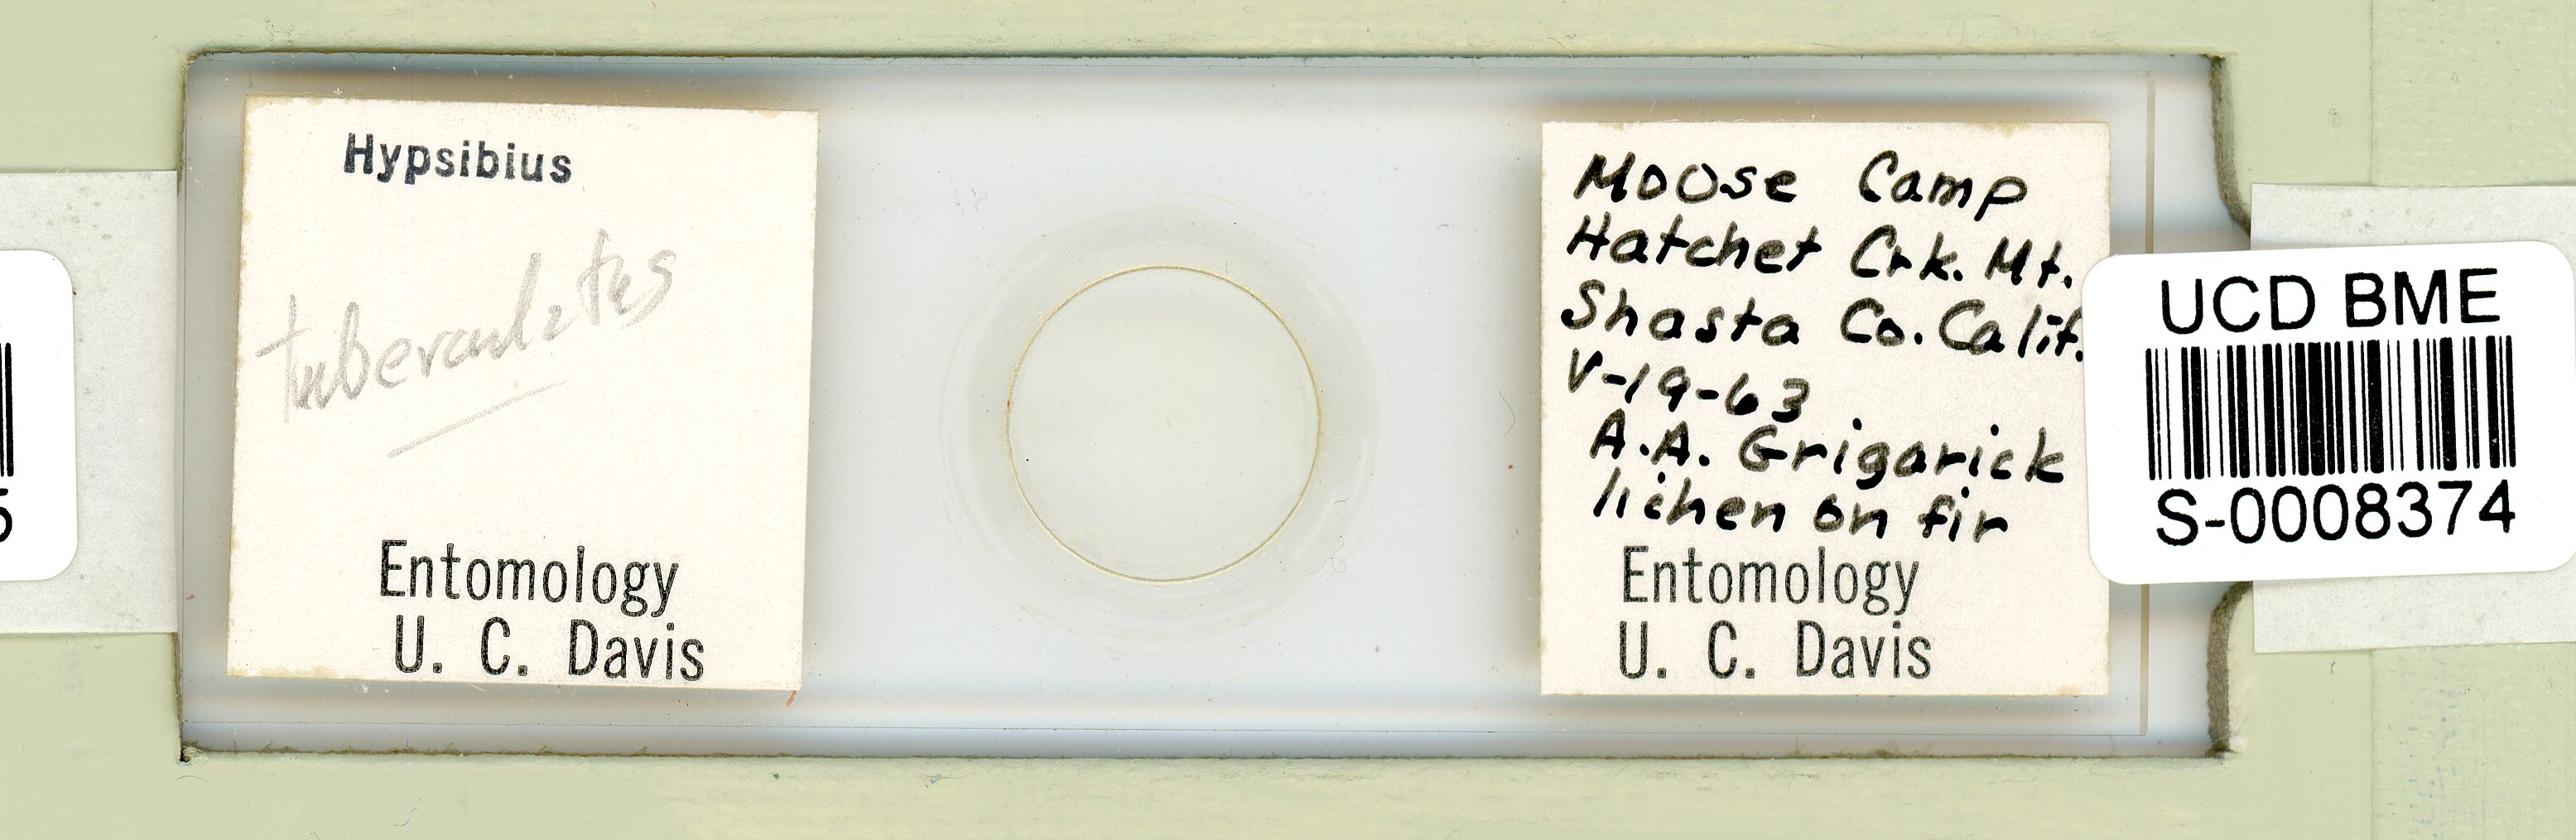 Hypsibius
tuberculatus
Entomology
U. C. Davis
Moose Camp
Hatchet Crk. Mt.
Shasta Co. Calif.
V-19-63
A.A. Grigarick
lichen on fir
Entomology
U. C. Davis
UCD BME
S-0008374
5